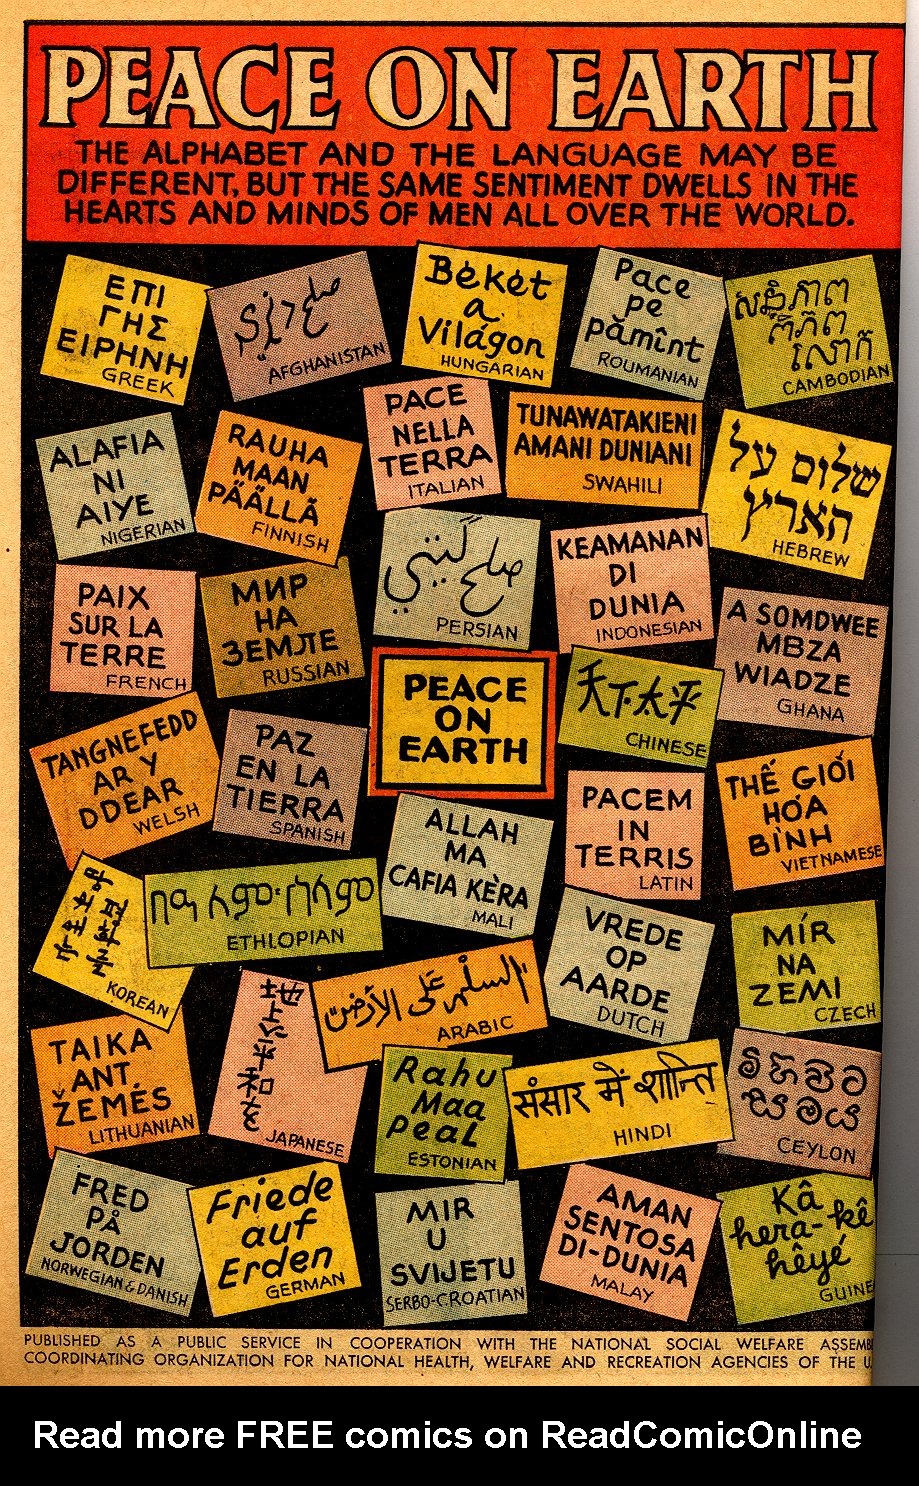 PEACE ON EARTH
THE ALPHABET AND THE LANGUAGE MAY BE
DIFFERENT, BUT THE SAME SENTIMENT DWELLS IN THE
HEARTS AND MINDS OF MEN ALL OVER THE WORLD.
ΕΠΙ
ΓΗΣ
ΕΙΡΗΝΗ
GREEK
AFGHANISTAN
Békét
a
Világon
HUNGARIAN
Pace
pe
pămînt
ROUMANIAN
CAMBODIAN
ALAFIA
NI
AIYE
NIGERIAN
RAUHA
MAAN
PÄÄLLÄ
FINNISH
PACE
NELLA
TERRA
ITALIAN
TUNAWATAKIENI
AMANI DUNIANI
SWAHILI
שלום על
הארץ
HEBREW
PAIX
SUR LA
TERRE
FRENCH
МИР
НА
ЗЕМЛЕ
RUSSIAN
صلح گیتی
PERSIAN
KEAMANAN
DI
DUNIA
INDONESIAN
A SOMDWEE
MBZA
WIADZE
GHANA
PEACE
ON
EARTH
天下太平
CHINESE
TANGNEFEDD
AR Y
DDEAR
WELSH
PAZ
EN LA
TIERRA
SPANISH
ALLAH
MA
CAFIA KÈRA
MALI
PACEM
IN
TERRIS
LATIN
THẾ GIỚI
HÓA
BÌNH
VIETNAMESE
KOREAN
በዓለም፡ሰላም
ETHLOPIAN
السلم على الأرض
ARABIC
VREDE
OP
AARDE
DUTCH
MÍR
NA
ZEMI
CZECH
TAIKA
ANT
ŽEMÉS
LITHUANIAN
地上に平和を
JAPANESE
Rahu
Maa
peal
ESTONIAN
संसार में शान्ति
HINDI
CEYLON
FRED
PÅ
JORDEN
NORWEGIAN & DANISH
Friede
auf
Erden
GERMAN
MIR
U
SVIJETU
SERBO-CROATIAN
AMAN
SENTOSA
DI-DUNIA
MALAY
Kâ
hera-kê
hêyé
GUINE
PUBLISHED AS A PUBLIC SERVICE IN COOPERATION WITH THE NATIONAL SOCIAL WELFARE ASSEMB
COORDINATING ORGANIZATION FOR NATIONAL HEALTH, WELFARE AND RECREATION AGENCIES OF THE U.
Read more FREE comics on ReadComicOnline